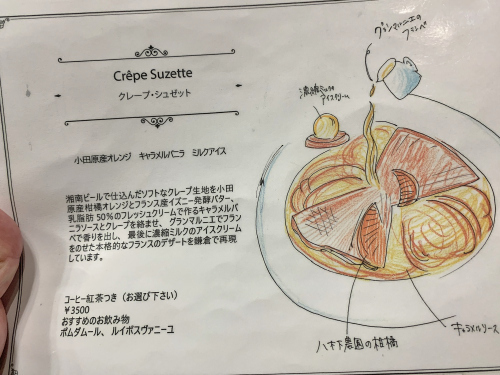 Crêpe Suzette
クレープ・シュゼット
小田原産オレンジ　キャラメルバニラ　ミルクアイス
湘南ビールで仕込んだソフトなクレープ生地を小田
原産柑橘オレンジとフランス産イズニー発酵バター、
乳脂肪 50％のフレッシュクリームで作るキャラメルバ
ニラソースとクレープを絡ませ、グランマルニエでフラン
ベで香りを出し、最後に濃縮ミルクのアイスクリーム
をのせた本格的なフランスのデザートを鎌倉で再現
しています。
コーヒー紅茶つき（お選び下さい）
¥3500
おすすめのお飲み物
ポムダムール、ルイボスヴァニーユ
グランマルニエの
フランベ
濃縮ミルクの
アイスクリーム
農園の柑橘
キャラメルソース